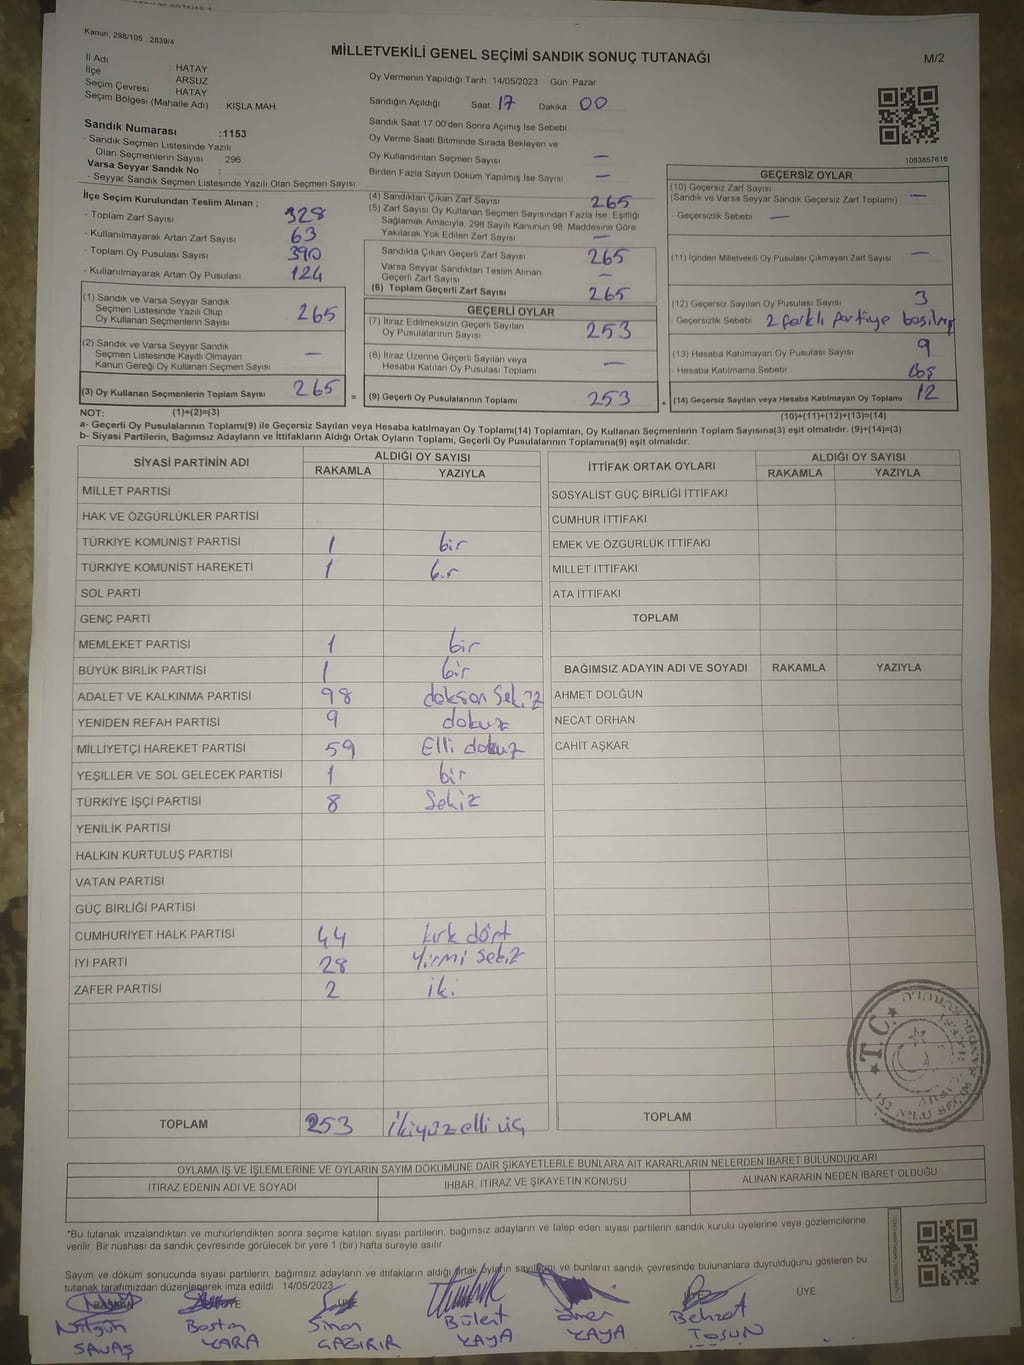 Kanun, 298/105 : 2839/4
MİLLETVEKİLİ GENEL SEÇİMİ SANDIK SONUÇ TUTANAĞI
M/2
İl Adı : HATAY
İlçe : ARSUZ
Seçim Çevresi : HATAY
Seçim Bölgesi (Mahalle Adı) : KIŞLA MAH.
Sandık Numarası :1153
- Sandık Seçmen Listesinde Yazılı
Olan Seçmenlerin Sayısı : 296
Varsa Seyyar Sandık No :
- Seyyar Sandık Seçmen Listesinde Yazılı Olan Seçmen Sayısı
Oy Vermenin Yapıldığı Tarih :14/05/2023 Gün: Pazar
Sandığın Açıldığı Saat: 17 Dakika: 00
Sandık Saat 17:00'den Sonra Açımış İse Sebebi
Oy Verme Saati Bitiminde Sırada Bekleyen ve
Oy Kullandırılan Seçmen Sayısı —
Birden Fazla Sayım Döküm Yapılmış İse Sayısı —
1083857616
İlçe Seçim Kurulundan Teslim Alınan ;
- Toplam Zarf Sayısı 328
- Kullanılmayarak Artan Zarf Sayısı 63
- Toplam Oy Pusulası Sayısı 390
- Kullanılmayarak Artan Oy Pusulası 124
(1) Sandık ve Varsa Seyyar Sandık
Seçmen Listesinde Yazılı Olup
Oy Kullanan Seçmenlerin Sayısı 265
(2) Sandık ve Varsa Seyyar Sandık
Seçmen Listesinde Kayıtlı Olmayan
Kanun Gereği Oy Kullanan Seçmen Sayısı —
(3) Oy Kullanan Seçmenlerin Toplam Sayısı 265 =
(4) Sandıktan Çıkan Zarf Sayısı 265
(5) Zarf Sayısı Oy Kullanan Seçmen Sayısından Fazla İse, Eşitliği
Sağlamak Amacıyla, 298 Sayılı Kanunun 98. Maddesine Göre
Yakılarak Yok Edilen Zarf Sayısı —
Sandıkta Çıkan Geçerli Zarf Sayısı 265
Varsa Seyyar Sandıktan Teslim Alınan
Geçerli Zarf Sayısı —
(6) Toplam Geçerli Zarf Sayısı 265
GEÇERLİ OYLAR
(7) İtiraz Edilmeksizin Geçerli Sayılan
Oy Pusulalarının Sayısı 253
(8) İtiraz Üzerine Geçerli Sayılan veya
Hesaba Katılan Oy Pusulası Toplamı —
(9) Geçerli Oy Pusulalarının Toplamı 253 +
GEÇERSİZ OYLAR
(10) Geçersiz Zarf Sayısı
(Sandık ve Varsa Seyyar Sandık Geçersiz Zarf Toplamı) —
- Geçersizlik Sebebi —
(11) İçinden Milletvekili Oy Pusulası Çıkmayan Zarf Sayısı —
(12) Geçersiz Sayılan Oy Pusulası Sayısı 3
- Geçersizlik Sebebi 2 farklı partiye basılmış
(13) Hesaba Katılmayan Oy Pusulası Sayısı 9
- Hesaba Katılmama Sebebi Boş
(14) Geçersiz Sayılan veya Hesaba Katılmayan Oy Toplamı 12
NOT: (1)+(2)=(3) (10)+(11)+(12)+(13)=(14)
a- Geçerli Oy Pusulalarının Toplamı(9) ile Geçersiz Sayılan veya Hesaba katılmayan Oy Toplamı(14) Toplamları, Oy Kullanan Seçmenlerin Toplam Sayısına(3) eşit olmalıdır. (9)+(14)=(3)
b- Siyasi Partilerin, Bağımsız Adayların ve İttifakların Aldığı Ortak Oyların Toplamı, Geçerli Oy Pusulalarının Toplamına(9) eşit olmalıdır.
SİYASİ PARTİNİN ADI ALDIĞI OY SAYISI
RAKAMLA YAZIYLA
MİLLET PARTİSİ
HAK VE ÖZGÜRLÜKLER PARTİSİ
TÜRKİYE KOMÜNİST PARTİSİ 1 bir
TÜRKİYE KOMÜNİST HAREKETİ 1 bir
SOL PARTİ
GENÇ PARTİ
MEMLEKET PARTİSİ 1 bir
BÜYÜK BİRLİK PARTİSİ 1 bir
ADALET VE KALKINMA PARTİSİ 98 doksan sekiz
YENİDEN REFAH PARTİSİ 9 dokuz
MİLLİYETÇİ HAREKET PARTİSİ 59 Elli dokuz
YEŞİLLER VE SOL GELECEK PARTİSİ 1 bir
TÜRKİYE İŞÇİ PARTİSİ 8 Sekiz
YENİLİK PARTİSİ
HALKIN KURTULUŞ PARTİSİ
VATAN PARTİSİ
GÜÇ BİRLİĞİ PARTİSİ
CUMHURİYET HALK PARTİSİ 44 kırk dört
İYİ PARTİ 28 Yirmi sekiz
ZAFER PARTİSİ 2 iki
TOPLAM 253 ikiyüz elli üç
İTTİFAK ORTAK OYLARI ALDIĞI OY SAYISI
RAKAMLA YAZIYLA
SOSYALİST GÜÇ BİRLİĞİ İTTİFAKI
CUMHUR İTTİFAKI
EMEK VE ÖZGÜRLÜK İTTİFAKI
MİLLET İTTİFAKI
ATA İTTİFAKI
TOPLAM
BAĞIMSIZ ADAYIN ADI VE SOYADI RAKAMLA YAZIYLA
AHMET DOLĞUN
NECAT ORHAN
CAHİT AŞKAR
TOPLAM
T.C.
OYLAMA İŞ VE İŞLEMLERİNE VE OYLARIN SAYIM DÖKÜMÜNE DAİR ŞİKAYETLERLE BUNLARA AİT KARARLARIN NELERDEN İBARET BULUNDUKLARI
İTİRAZ EDENİN ADI VE SOYADI İHBAR, İTİRAZ VE ŞİKAYETİN KONUSU ALINAN KARARIN NEDEN İBARET OLDUĞU
*Bu tutanak imzalandıktan ve mühürlendikten sonra seçime katılan siyasi partilerin, bağımsız adayların ve talep eden siyasi partilerin sandık kurulu üyelerine veya gözlemcilerine
verilir. Bir nüshası da sandık çevresinde görülecek bir yere 1 (bir) hafta süreyle asılır.
Sayım ve döküm sonucunda siyasi partilerin, bağımsız adayların ve ittifakların aldığı ortak oyların sayıldığını ve bunların sandık çevresinde bulunanlara duyrulduğunu gösteren bu
tutanak tarafımızdan düzenlenerek imza edildi. 14/05/2023
BAŞKAN ÜYE ÜYE ÜYE ÜYE
Nilgün Bostan Sinan Bülent Ömer Behzat
SAVAŞ KARA YAYA YAYA TOSUN